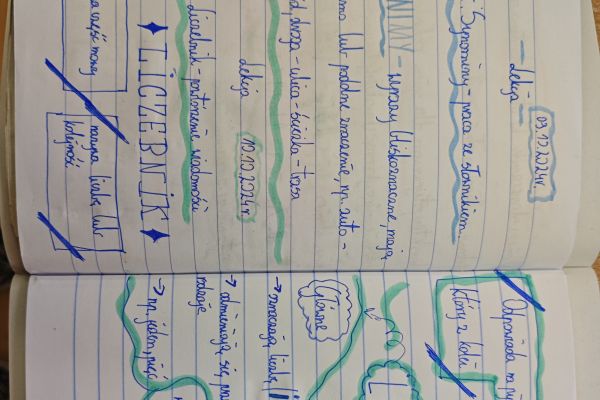 Lekcja
09.10.2024r.
: Synonimy - praca ze słownikiem.
NIMY - wyrazy bliskoznaczne, mają
samo lub podobne znaczenie, np. auto -
droga - ulica - ścieżka - trasa
Lekcja
10.10.2024r.
Liczebnik - powtórzenie wiadomości.
LICZEBNIK
część mowy
nazywa liczbę lub
kolejność
Odpowiada na
który z kolei
Główne
→ oznaczają liczbę
→ odmieniają się
rodzaje
→ np. jeden, pięć